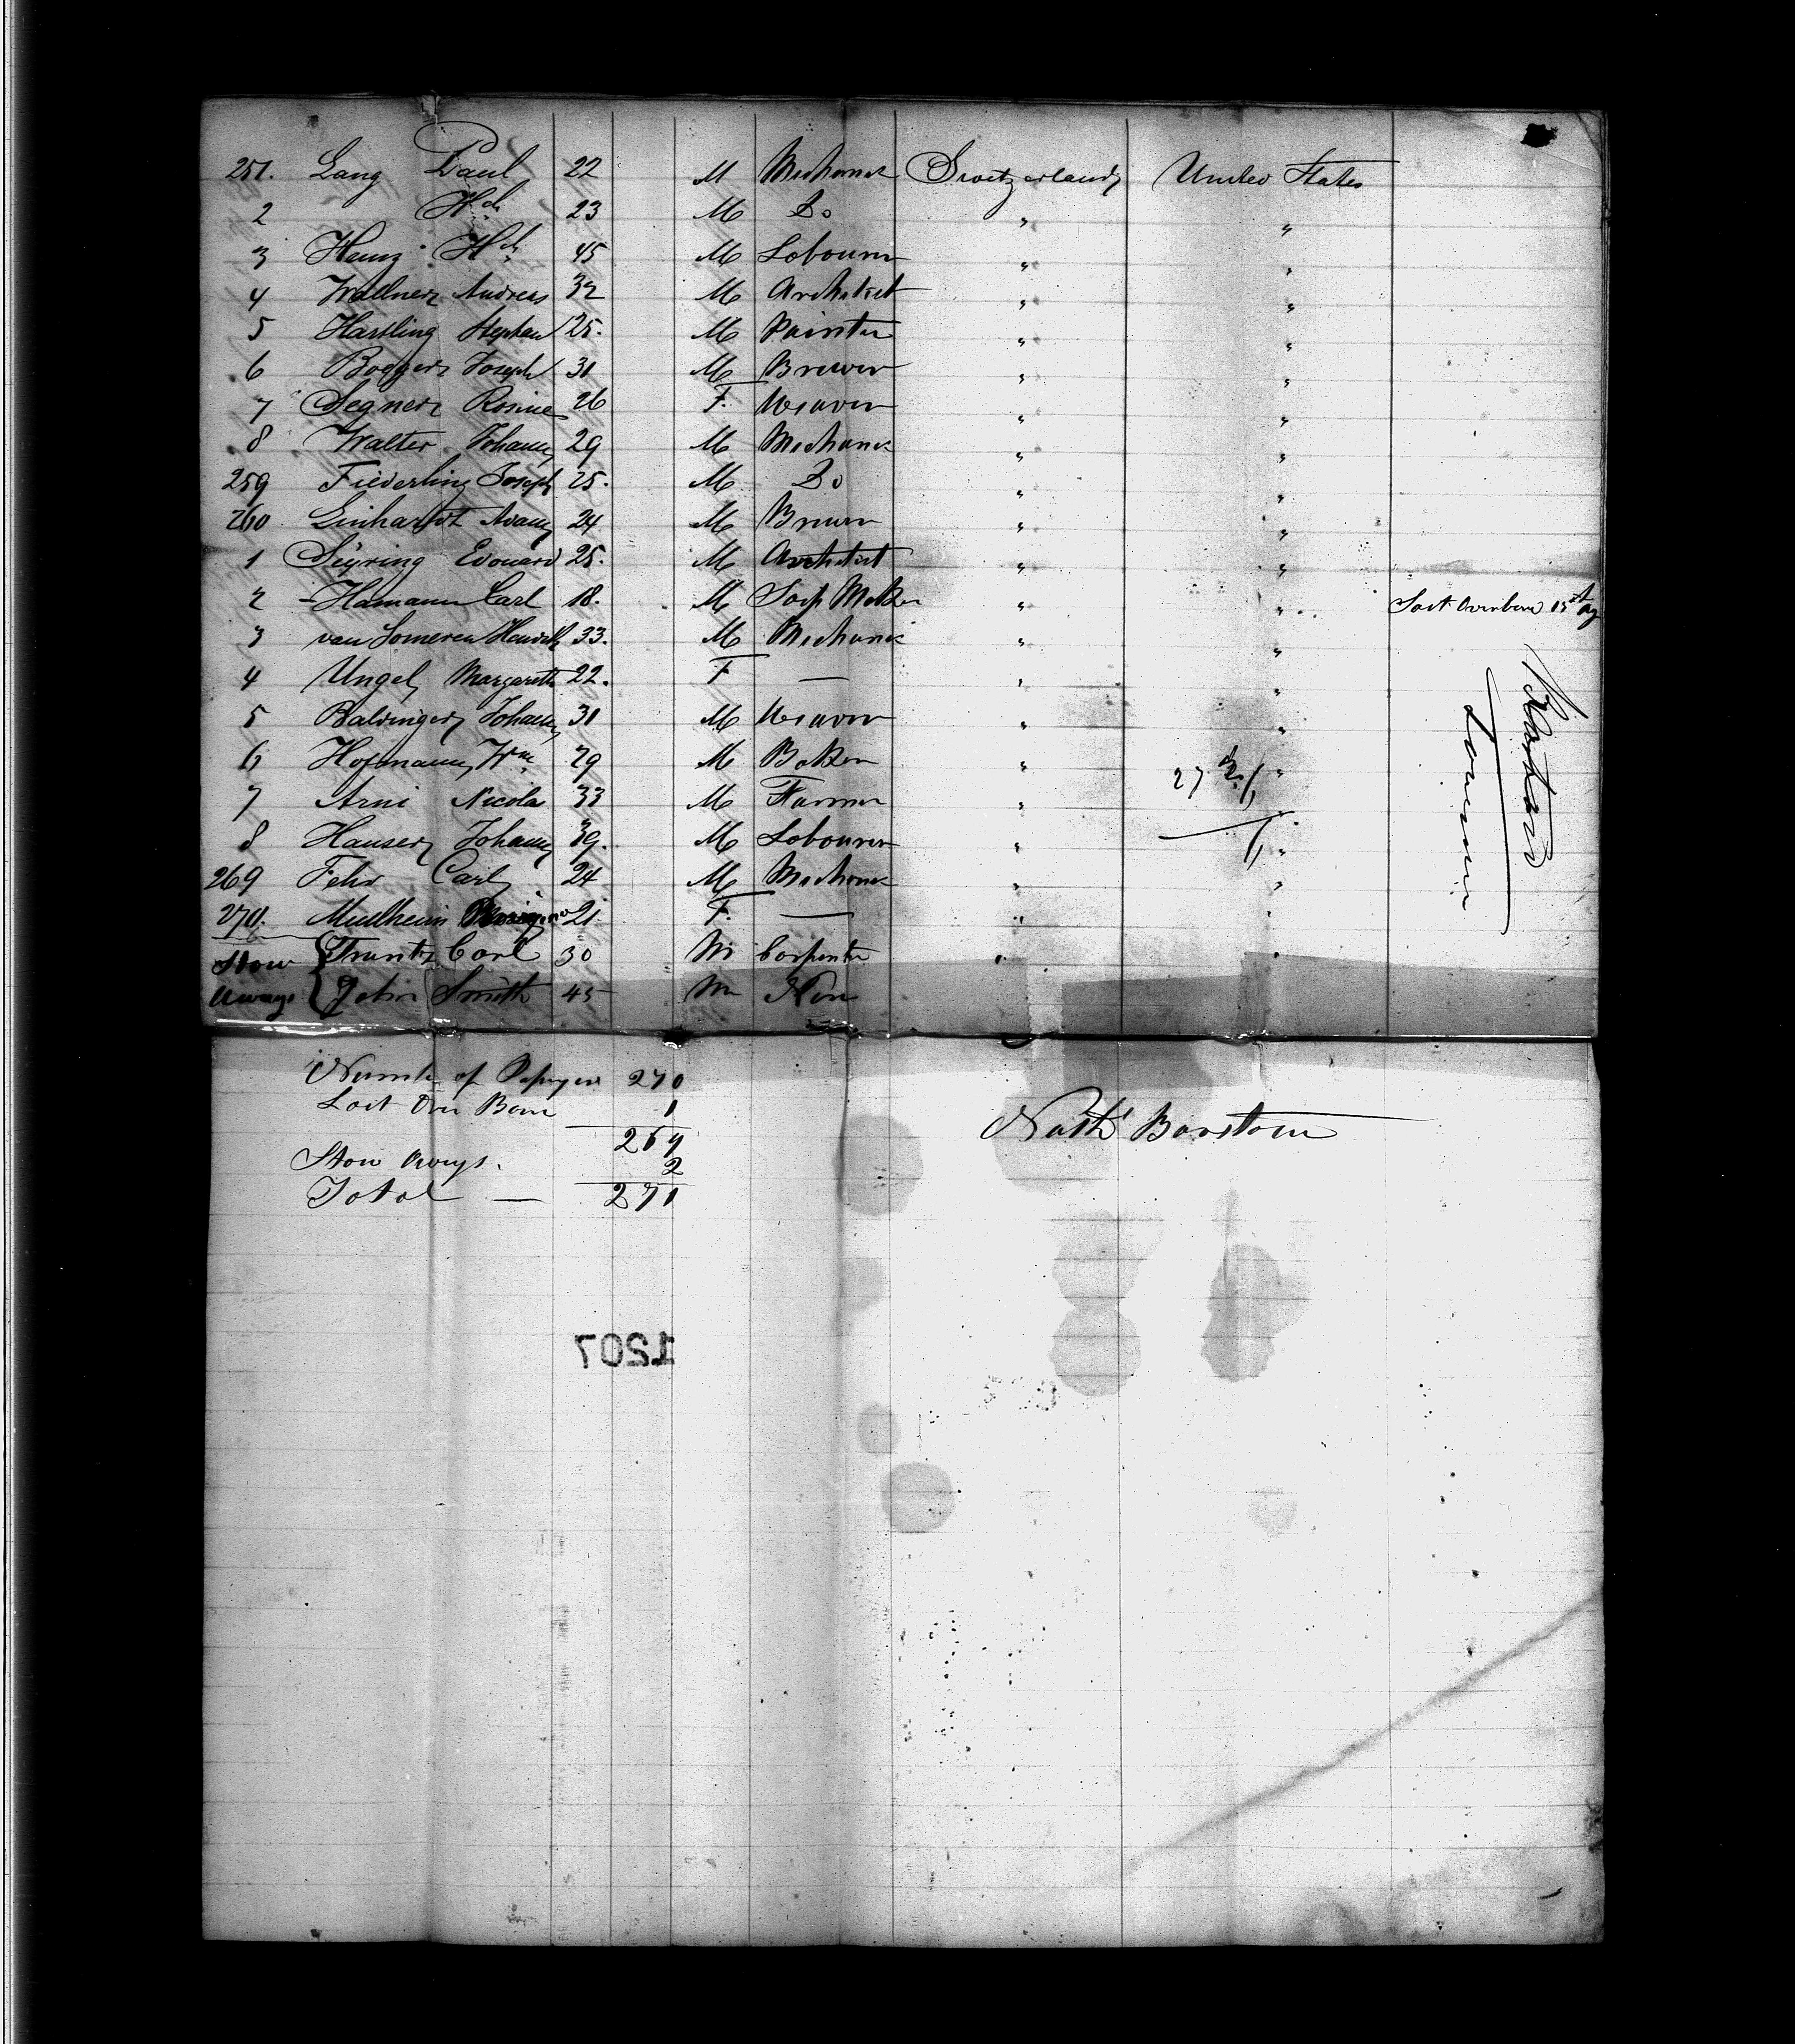 251. Lang Paul 22 M Mechanic Switzerland United States
2 Hch 23 M Do " "
3 Heinz Hch 45 M Labourer " "
4 Wallner Andreas 32 M Architect " "
5 Hartling Stephan 25. M Painter " "
6 Bogger Joseph 31 M Brewer " "
7 Segner Rosine 26 F. Weaver " "
8 Walter Johann 29 M Mechanic " "
259 Fiederling Joseph 25. M Do " "
260 Linhardt Adam 24 M Brewer " "
1 Seyring Edouard 25. M Architect " "
2 Hamann Carl 18. M Soap Maker " " Lost Overboard 15th Ag
3 van Someren Hendrik 33. M Mechanic " "
4 Ungel Margareth 22. F — " "
5 Baldinger Johann 31 M Weaver " "
6 Hofmann, Wm 29 M Baker " "
7 Arni Nicola 33 M Farmer " "
8 Hauser Johann 39. M Labourer " "
269 Fehr Carl 24 M Mechanic " "
270. Mulheim 21. F. — " "
Stow Frantz Carl 30 M Carpenter " "
Aways John Smith 45 M Non
27
Number of Passengers 270
Lost Over Board 1
269
Stow Aways. 2
Total — 271
Nath Barstow
1207